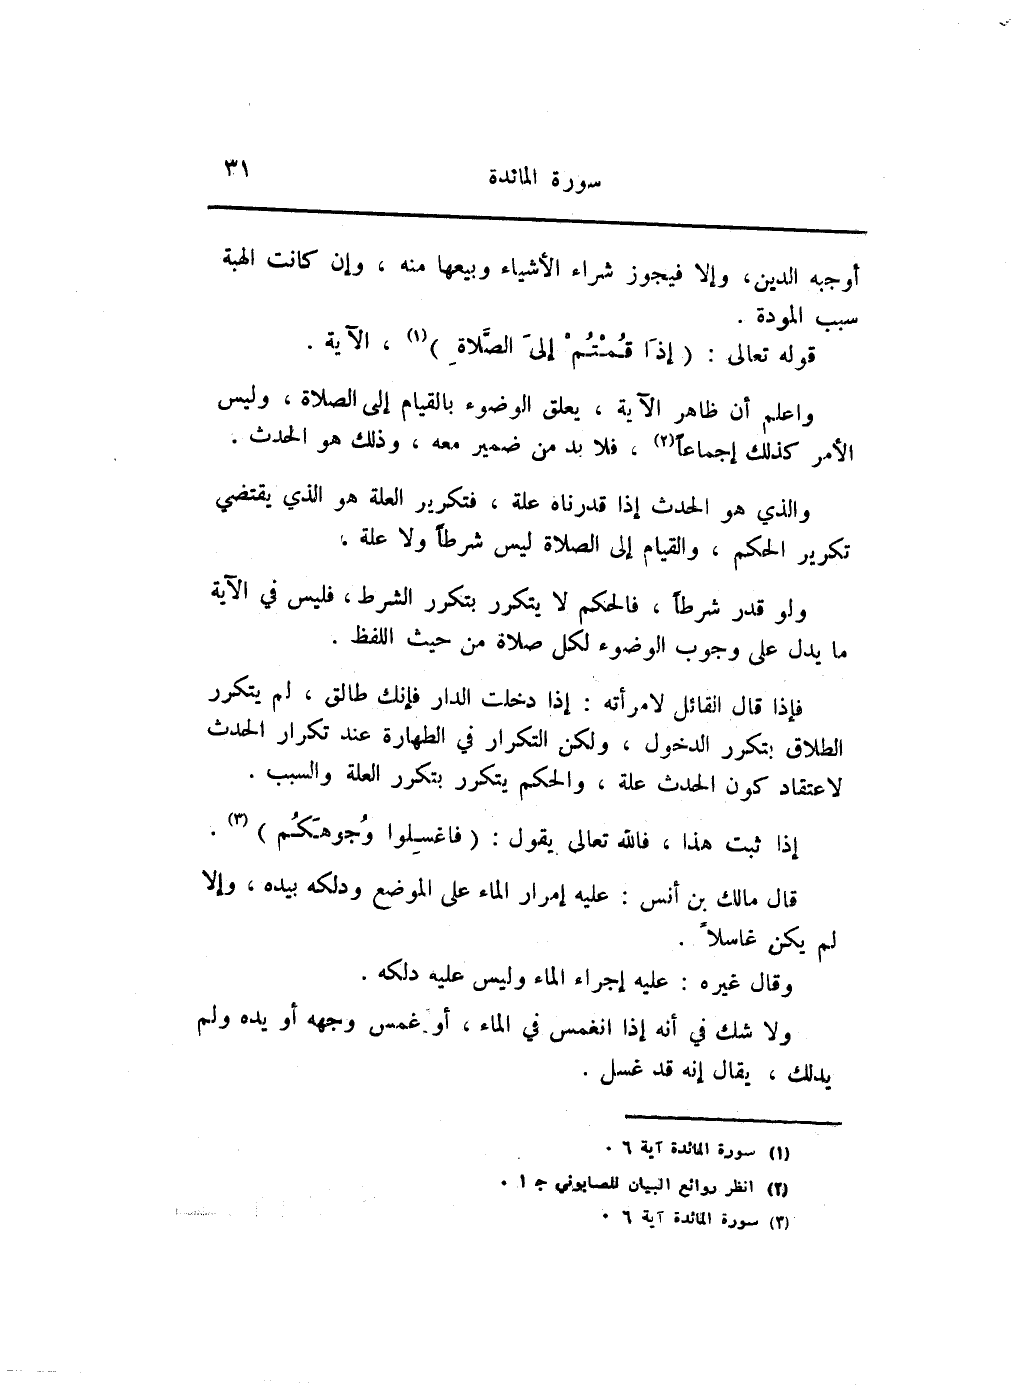 سورة المائدة ٣١
أوجبه الدين، وإلا فيجوز شراء الأشياء وبيعها منه ، وإن كانت الهبة
سبب المودة .
قوله تعالى : ( إذَا قُمْتُمْ إلىَ الصَّلاةِ )(١) ، الآية .
واعلم أن ظاهر الآية ، يعلق الوضوء بالقيام إلى الصلاة ، وليس
الأمر كذلك إجماعاً(٢) ، فلا بد من ضمير معه ، وذلك هو الحدث .
والذي هو الحدث إذا قدرناه علة ، فتكرير العلة هو الذي يقتضي
تكرير الحكم ، والقيام إلى الصلاة ليس شرطاً ولا علة .
ولو قدر شرطاً ، فالحكم لا يتكرر بتكرر الشرط ، فليس في الآية
ما يدل على وجوب الوضوء لكل صلاة من حيث اللفظ .
فإذا قال القائل لامرأته : إذا دخلت الدار فإنك طالق ، لم يتكرر
الطلاق بتكرر الدخول ، ولكن التكرار في الطهارة عند تكرار الحدث
لاعتقاد كون الحدث علة ، والحكم يتكرر بتكرر العلة والسبب .
إذا ثبت هذا ، فالله تعالى يقول : ( فاغسِلوا وُجوهَكُم ) (٣) .
قال مالك بن أنس : عليه إمرار الماء على الموضع ودلكه بيده ، وإلا
لم يكن غاسلاً .
وقال غيره : عليه إجراء الماء وليس عليه دلكه .
ولا شك في أنه إذا انغمس في الماء ، أو غمس وجهه أو يده ولم
يدلك ، يقال إنه قد غسل .
(١) سورة المائدة آية ٦ .
(٢) انظر روائع البيان للصابوني ج ١ .
(٣) سورة المائدة آية ٦ .